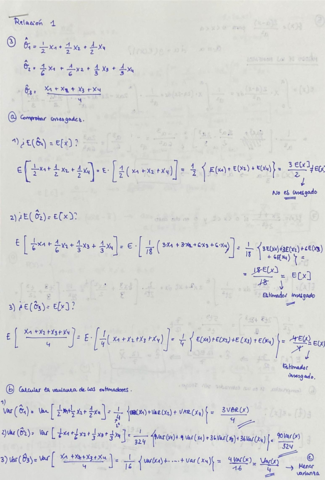 Relación 1
③ θ̂₁ = 1/2 x₁ + 1/2 x₂ + 1/2 x₄
θ̂₂ = 1/6 x₁ + 1/6 x₂ + 1/3 x₃ + 1/3 x₄
θ̂₃ = (x₁ + x₂ + x₃ + x₄)/4
ⓐ Comprobar insesgadez.
1) ¿E(θ̂₁) = E[x]?
E[1/2 x₁ + 1/2 x₂ + 1/2 x₄] = E·[1/2 (x₁ + x₂ + x₄)] = 1/2 {E(x₁) + E(x₂) + E(x₄)} = 3E[x]/2 ≠ E[x]
No es insesgado
2) ¿E(θ̂₂) = E[x]?
E[1/6 x₁ + 1/6 x₂ + 1/3 x₃ + 1/3 x₄] = E·[1/18 (3x₁ + 3x₂ + 6x₃ + 6x₄)] = 1/18 {3E(x₁) + 3E(x₂) + 6E(x₃)
+ 6E(x₄)} =
= 18·E[x]/18 = E[x]
Estimador insesgado
3) ¿E(θ̂₃) = E[x]?
E[(x₁ + x₂ + x₃ + x₄)/4] = E·[1/4 (x₁ + x₂ + x₃ + x₄)] = 1/4 {E(x₁) + E(x₂) + E(x₃) + E(x₄)} = 4E[x]/4 = E[x]
Estimador
insesgado.
ⓑ Calcular la varianza de los estimadores.
1) Var(θ̂₁) = Var[1/2 x₁ + 1/2 x₂ + 1/2 x₄] = 1/4 {Var(x₁) + Var(x₂) + VAR(x₄)} = 3VAR(x)/4
2) Var(θ̂₂) = Var[1/6 x₁ + 1/6 x₂ + 1/3 x₃ + 1/3 x₄] = 1/324 {9Var(x₁) + 9Var(x₂) + 36Var(x₃) + 36Var(x₄)} = 90Var(x)/324
3) Var(θ̂₃) = Var[(x₁ + x₂ + x₃ + x₄)/4] = 1/16 {Var(x₁) + ..... + Var(x₄)} = 4Var(x)/16 = Var(x)/4 → Menor
varianza